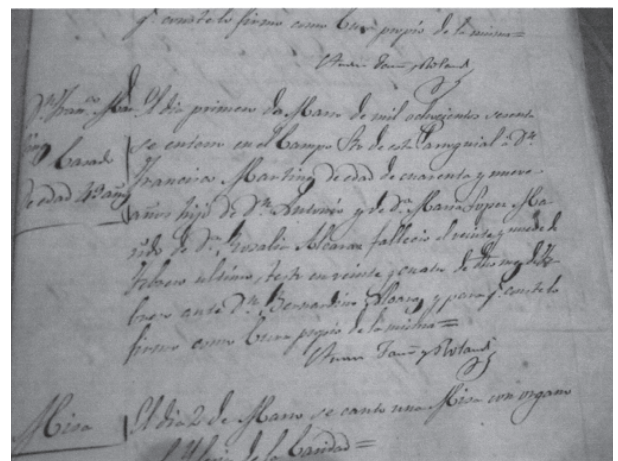 q.e conste lo firmo como Cura propio de la misma=
Juan y Roland
D.n Fran.co Mar
Casado
de edad 49 años
El dia primero de Marzo de mil ochocientos sesenta
se enterro en el Campo Sto de esta Parroquial à D.n
Francisco Martinez de edad de cuarenta y nueve
años hijo de D.n Antonio y de D.a Maria Lopez Ma
rido de D.a Rosalia Alcaraz fallecio el veinte y nueve de
Febrero ultimo, testo en veinte y cuatro de dho mes de Fe
brero ante D.n Bernardino Alcaraz y para q.e conste lo
firmo como Cura propio de la misma=
Juan y Roland
Misa
El dia 2 de Marzo se canto una Misa con organo
de la Caridad=